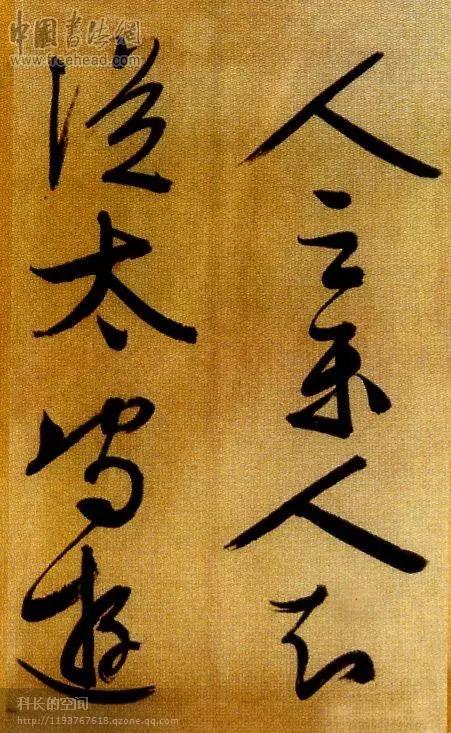 中國書法網
www.freehead.com
人之樂人知
從太守遊
科长的空间
http://1193767618.qzone.qq.com